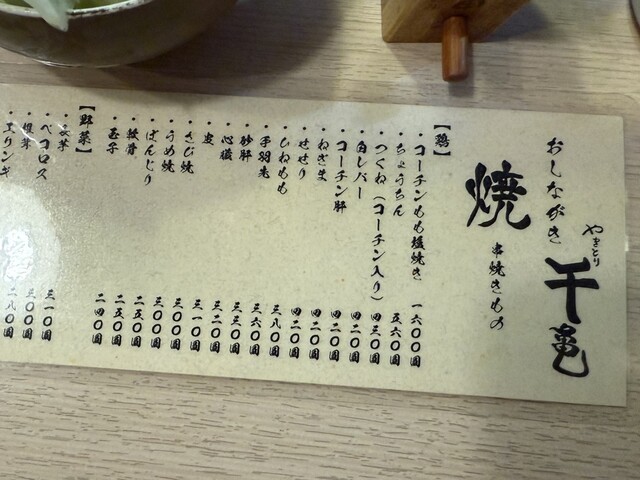 やきとり
千亀
おしながき
焼
串焼きもの
【鶏】
・コーチンもも塩焼き 一六〇〇圓
・ちょうちん 五六〇圓
・つくね(コーチン入り) 四三〇圓
・白レバー 四二〇圓
・コーチン肝 四二〇圓
・ねぎま 四二〇圓
・せせり 四二〇圓
・ひねもも 三八〇圓
・手羽先 三六〇圓
・砂肝 三三〇圓
・心臓 三二〇圓
・皮 三一〇圓
・さび焼 三〇〇圓
・うめ焼 三〇〇圓
・ぼんじり 二五〇圓
・軟骨 二五〇圓
・玉子 二四〇圓
【野菜】
・長芋 三一〇圓
・ペコロス 三〇〇圓
・椎茸 二八〇圓
・エリンギ